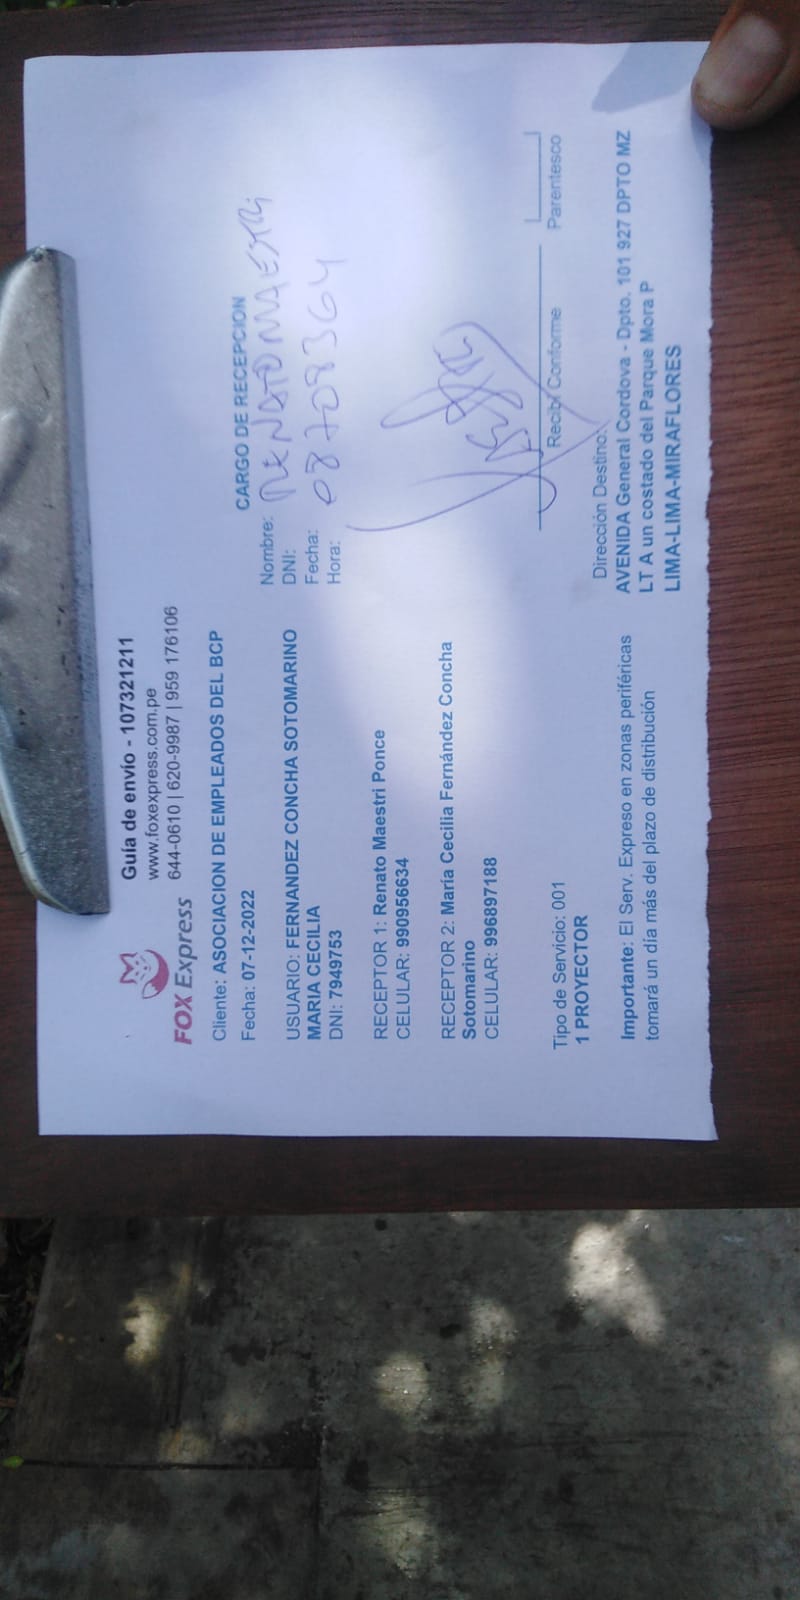 FOX Express
Guía de envío - 107321211
www.foxexpress.com.pe
644-0610 | 620-9987 | 959 176106
Cliente: ASOCIACION DE EMPLEADOS DEL BCP
Fecha: 07-12-2022
USUARIO: FERNANDEZ CONCHA SOTOMARINO
MARIA CECILIA
DNI: 7949753
RECEPTOR 1: Renato Maestri Ponce
CELULAR: 990956634
RECEPTOR 2: María Cecilia Fernández Concha
Sotomarino
CELULAR: 996897188
Tipo de Servicio: 001
1 PROYECTOR
Importante: El Serv. Expreso en zonas periféricas
tomará un día más del plazo de distribución
CARGO DE RECEPCION
Nombre: RENATO MAESTRI
DNI:
Fecha: 08708364
Hora:
Recibí Conforme
Parentesco
Dirección Destino:
AVENIDA General Cordova - Dpto. 101 927 DPTO MZ
LT A un costado del Parque Mora P
LIMA-LIMA-MIRAFLORES